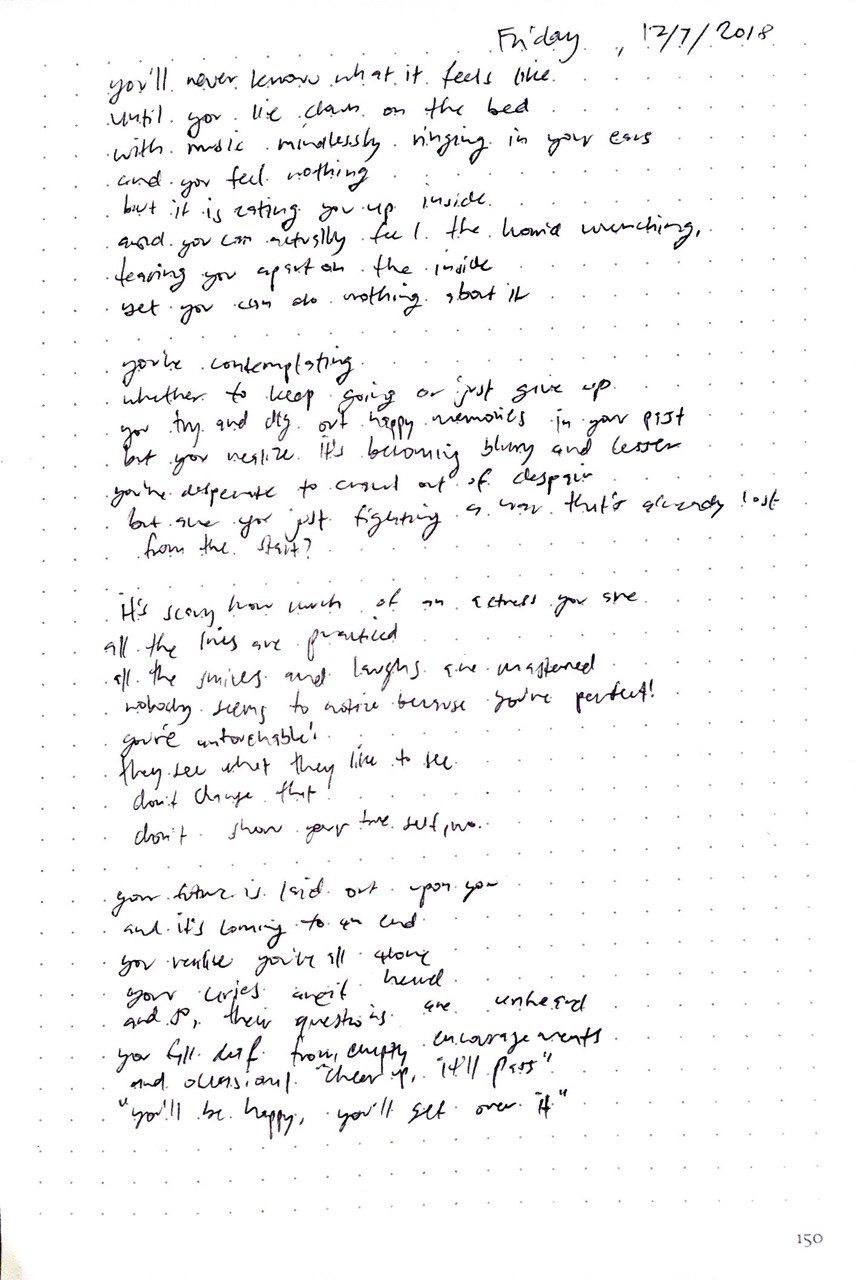 Friday, 12/7/2018
you'll never know what it feels like
until you lie down on the bed
with music mindlessly ringing in your ears
and you feel nothing
but it is eating you up inside
and you can actually feel the wrenching,
tearing you apart on the inside
yet you can do nothing about it
you're contemplating
whether to keep going or just give up
you try and dig out happy memories in your past
but you realize it's becoming blurry and lesser
you're desperate to crawl out of despair
but are you just fighting a war that's already lost
from the start?
it's scary how much of an actress you are
all the lines are practiced
all the smiles and laughs are mastered
nobody seems to notice because you're perfect!
you're untouchable!
they see what they like to see
don't change that
don't show your true self, no.
your future is laid out upon you
and it's coming to an end
you realise you're all alone
your cries aren't heard
and so, their questions are unheard
you fall deaf from empty encouragements
and occasional "cheer up, it'll pass"
"you'll be happy, you'll get over it"
150